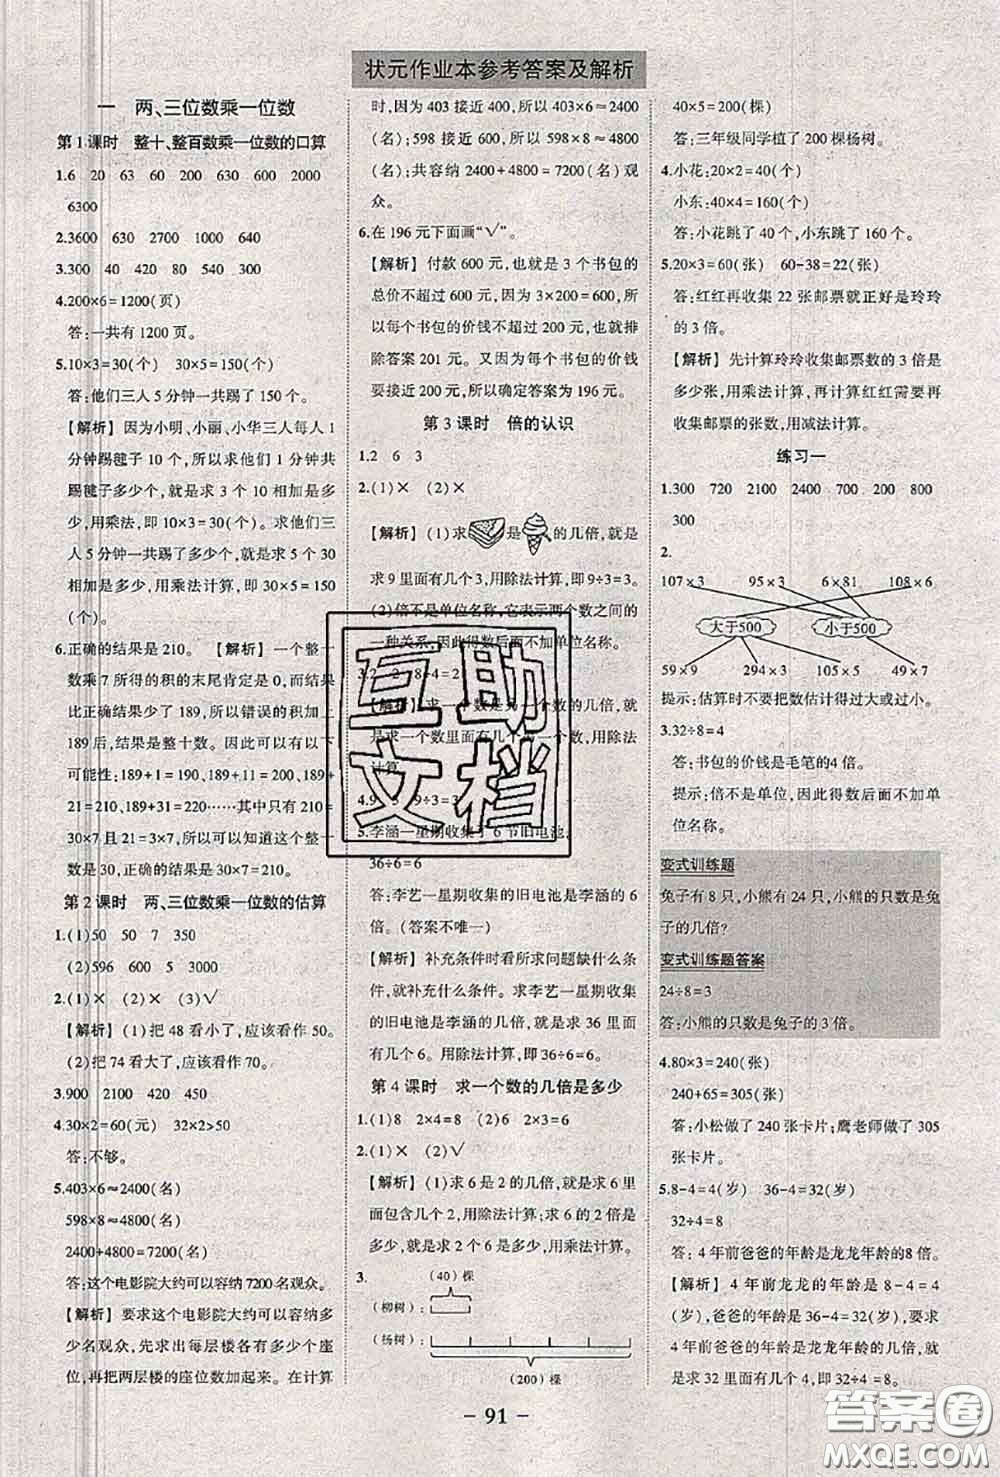 状元作业本参考答案及解析
一 两、三位数乘一位数
第1课时 整十、整百数乘一位数的口算
1.6 20 63 60 200 630 600 2000
6300
2.3600 630 2700 1000 640
3.300 40 420 80 540 900
4.200×6=1200(页)
答:一共有1200页。
5.10×3=30(个) 30×5=150(个)
答:他们三人5分钟一共踢了150个。
【解析】因为小明、小丽、小华三人每人1
分钟踢毽子10个,所以求他们三人1分钟共
踢毽子多少个,就是求3个10相加是多
少,用乘法,即10×3=30(个)。求他们三
人5分钟一共踢了多少个,就是求5个30
相加是多少,用乘法计算,即30×5=150
(个)。
6.正确的结果是210。 【解析】一个整十
数乘7所得的积的末尾肯定是0,错误的积
比正确结果少了189,所以错误的积加上
189,应该是整十数。因此可以有以下几种
可能性:189+1=190,189+11=200,189
+21=210,189+31=220……其中只有210
=30×7且21=3×7,所以可以知道这个整十
数是30,正确的结果是210。
第2课时 两、三位数乘一位数的估算
1.(1)50 50 7 350
(2)596 600 5 3000
2.(1)× (2)× (3)√
【解析】(1)把48看小了,应该看作50。
(2)把74看大了,应该看作70。
3.900 2100 240 630 450
4.30×2=60(元) 32×2>50
答:不够。
5.403×6≈2400(名)
598×8≈4800(名)
2400+4800=7200(名)
答:这个电影院大约可以容纳7200名观众。
【解析】要求这个电影院大约可以容纳多
少名观众,先求出每层楼各有多少个座
位,再把两层楼的座位数加起来。在计算
时,因为403接近400,所以403×6≈2400
(名);598接近600,所以598×8≈4800
(名);共容纳2400+4800=7200(名)观
众。
6.在196元下面画“√”。
【解析】付款600元,也就是3个书包的
总价不超过600元,因为3×200=600,所
以每个书包的价钱不超过200元,也就排
除答案201元。又因为每个书包的价钱
要接近200元,所以确定答案为196元。
第3课时 倍的认识
1.2 6 3
2.(1)× (2)×
【解析】(1)求 是 的几倍,就是
求9里面有几个3,用除法计算,即9÷3=3。
(2)倍不是单位名称,它表示两个数之间的
一种关系,因此得数后面不加单位名称。
3.2 2 8÷4=2
【解析】求一个数是另一个数的几倍,就是
求一个数里面有几个另一个数,用除法
计算。
4.9 3 9÷3=3
5.李涵一星期收集了6节旧电池,
36÷6=6
答:李艺一星期收集的旧电池是李涵的6
倍。(答案不唯一)
【解析】补充条件时看所求问题缺什么条
件,就补充什么条件。求李艺一星期收集
的旧电池是李涵的几倍,就是求36里面
有几个6。用除法计算,即36÷6=6。
第4课时 求一个数的几倍是多少
1.(1)8 2×4=8 (2)6 2×3=6
2.(1)× (2)√
【解析】(1)求6是2的几倍,就是求6里
面包含几个2,用除法计算;求6的2倍是
多少,就是求2个6是多少,用乘法计算。
3. (40)棵
(柳树):
(杨树):
(200)棵
40×5=200(棵)
答:三年级同学植了200棵杨树。
4.小花:20×2=40(个)
小东:40×4=160(个)
答:小花跳了40个,小东跳了160个。
5.20×3=60(张) 60-38=22(张)
答:红红再收集22张邮票就正好是玲玲
的3倍。
【解析】先计算玲玲收集邮票数的3倍是
多少张,用乘法计算,再计算红红需要再
收集邮票的张数,用减法计算。
练习一
1.300 720 2100 2400 700 200 800
300
2.
107×3 95×3 6×81 108×6
大于500 小于500
59×9 294×3 105×5 49×7
提示:估算时不要把数估计得过大或过小。
3.32÷8=4
答:书包的价钱是毛笔的4倍。
提示:倍不是单位,因此得数后面不加单
位名称。
变式训练题
兔子有8只,小熊有24只,小熊的只数是兔
子的几倍?
变式训练题答案
24÷8=3
答:小熊的只数是兔子的3倍。
4.80×3=240(张)
240+65=305(张)
答:小松做了240张卡片;鹰老师做了305
张卡片。
5.8-4=4(岁) 36-4=32(岁)
32÷4=8
答:4年前爸爸的年龄是龙龙年龄的8倍。
【解析】4年前龙龙的年龄是8-4=4
(岁),爸爸的年龄是36-4=32(岁),求
4年前爸爸的年龄是龙龙年龄的几倍,就
是求32里面有几个4,即32÷4=8。
- 91 -
互助
文档
答案圈
MXQE.COM